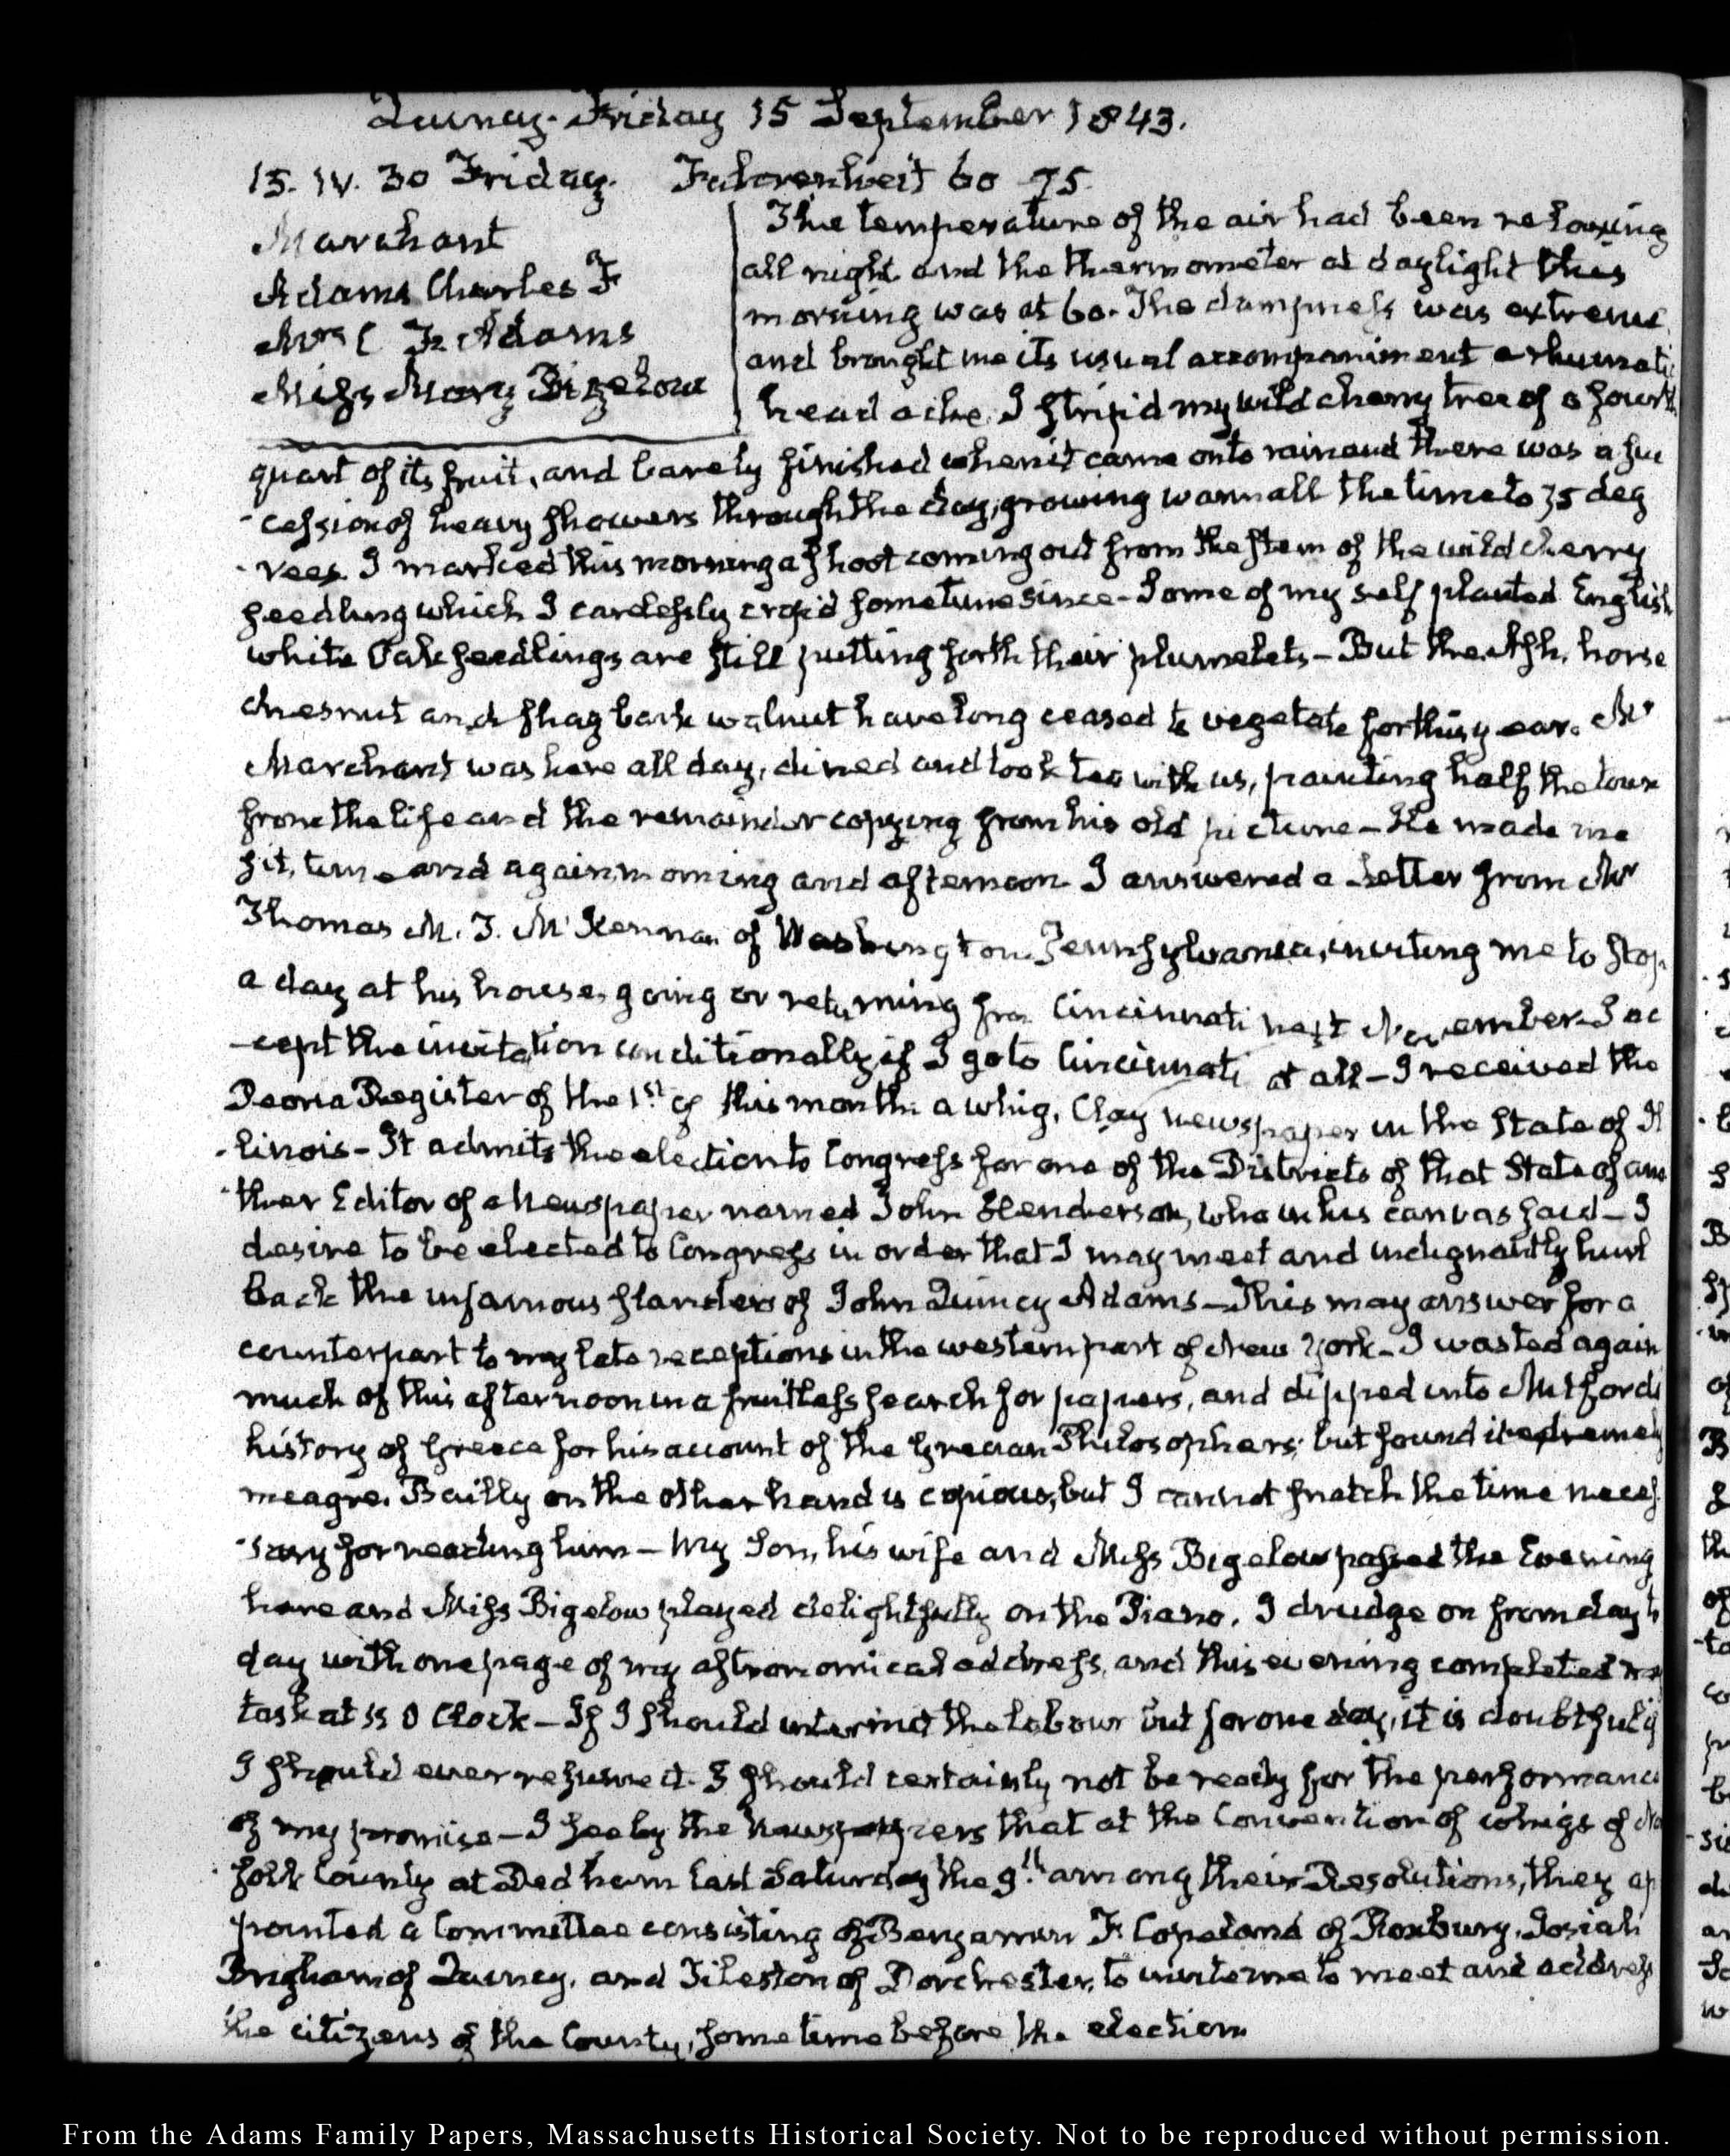 Quincy. Friday 15 September 1843.
15. IV. 30 Friday. Fahrenheit 60 75
Marchant
Adams Charles F
Mrs C F. Adams
Miss Mary Bigelow
The temperature of the air had been relaxing
all night and the thermometer at daylight this
morning was at 60. The dampness was extreme
and brought me its usual accompaniment a rhumatic
head ache. I strip'd my wild cherry tree of a fourth
quart of its fruit, and barely finished when it came on to rain and there was a suc
-cession of heavy showers through the day, growing warm all the time to 75 deg
-rees. I marked this morning a shoot coming out from the stem of the wild cherry
seedling which I carelessly crop'd some time since — Some of my self planted English
white Oak seedlings are still putting forth their plumelets — But the Ash, horse
chesnut and shagbark walnut have long ceased to vegetate for this year. Mr
Marchant was here all day, dined and took tea with us, painting half the time
from the life and the remainder copying from his old picture — He made me
sit, time and again, morning and afternoon. I answered a Letter from Mr
Thomas M. T. McKennan of Washington Pennsylvania, inviting me to stop
a day at his house, going or returning from Cincinnati next November. I ac
-cept the invitation conditionally, if I go to Cincinnati at all — I received the
Peoria Register of the 1st of this month a whig, Clay newspaper in the State of Il
-linois — It admits the election to Congress for one of the Districts of that State of ano
-ther Editor of a Newspaper named John Henderson, who in his canvas said — I
desire to be elected to Congress in order that I may meet and indignantly hurl
back the infamous slanders of John Quincy Adams — This may answer for a
counterpart to my late receptions in the western part of New York — I wasted again
much of this afternoon in a fruitless search for papers, and dipped into Mitford's
history of Greece for his account of the Grecian Philosophers; but found it extremely
meagre. Bailly on the other hand is copious, but I cannot snatch the time neces
-sary for reading him — My Son, his wife and Miss Bigelow passed the Evening
here and Miss Bigelow played delightfully on the Piano. I drudge on from day to
day with one page of my astronomical address, and this evening completed my
task at 11 O Clock — If I should intermit the labour but for one day, it is doubtful if
I should ever resume it. I should certainly not be ready for the performance
of my promise — I see by the Newspapers that at the Convention of whigs of No
-folk County at Dedham last Saturday the 9th among their Resolutions, they ap
pointed a Committee consisting of Benjamin F Copeland of Roxbury, Josiah
Brigham of Quincy, and Tileston of Dorchester, to invite me to meet and address
the citizens of the County, some time before the election
From the Adams Family Papers, Massachusetts Historical Society. Not to be reproduced without permission.